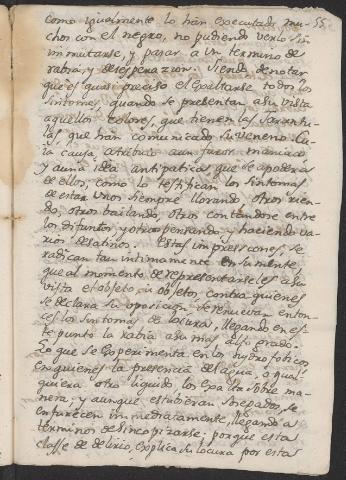 como igualmente lo han executado mu- 55.
chos con el negro, no pudiendo verlo sin
inmutarse, y pasar a un termino de
rabia, y desesperazion. Siendo denotar
que es quasi preciso el Exaltarse todos los
Sintomas, quando se presentan asu vista
aquellos colores, que tienen las Tarantu-
las, que han comunicado su veneno. Cu-
ia causa, atribuio aun furor maniaco
y auna idea antipaticas que se apodera
de ellos, como lo testifican los sintomas
de estar unos siempre llorando, otros rien-
do, otros bailando, otros contandose entre
los difuntos, y otros pensando, y haciendo va-
rios desatinos. Estas impressiones, se
radican tan intimamente en su mente,
que al momento de representarseles asu
vista el objeto, ù objetos, contra quienes
se declara su oposicion, se renuevan enton-
ces los sintomas de locura, llegando en es-
te punto la rabia asu mas alto grado.
Lo que se Experimenta en los hydrofobicos
en quienes la presencia del agua, ò qual
quiera otro liquido, los Exalta sobre ma-
nera, y aunque estubieran sosegados, se
enfurecen immediatamente, llegando a
terminos de sincopizarse; porque esta
classe de delirio, explica su locura por estas